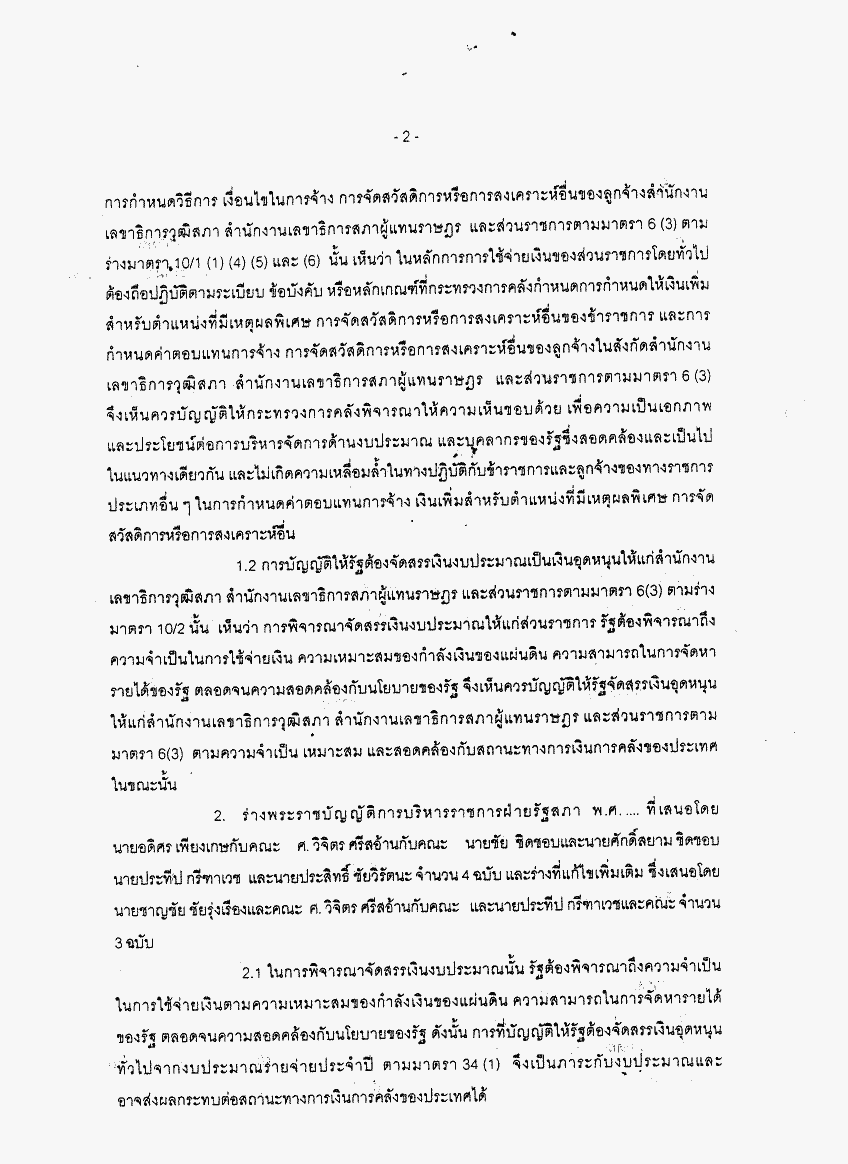 - 2 -
การกำหนดวิธีการ เงื่อนไขในการจ้าง การจัดสวัสดิการหรือการสงเคราะห์อื่นของลูกจ้างสำนักงาน
เลขาธิการวุฒิสภา สำนักงานเลขาธิการสภาผู้แทนราษฎร และส่วนราชการตามมาตรา 6 (3) ตาม
ร่างมาตรา 10/1 (1) (4) (5) และ (6) นั้น เห็นว่า ในหลักการการใช้จ่ายเงินของส่วนราชการโดยทั่วไป
ต้องถือปฏิบัติตามระเบียบ ข้อบังคับ หรือหลักเกณฑ์ที่กระทรวงการคลังกำหนดการกำหนดให้เงินเพิ่ม
สำหรับตำแหน่งที่มีเหตุผลพิเศษ การจัดสวัสดิการหรือการสงเคราะห์อื่นของข้าราชการ และการ
กำหนดค่าตอบแทนการจ้าง การจัดสวัสดิการหรือการสงเคราะห์อื่นของลูกจ้างในสังกัดสำนักงาน
เลขาธิการวุฒิสภา สำนักงานเลขาธิการสภาผู้แทนราษฎร และส่วนราชการตามมาตรา 6 (3)
จึงเห็นควรบัญญัติให้กระทรวงการคลังพิจารณาให้ความเห็นชอบด้วย เพื่อความเป็นเอกภาพ
และประโยชน์ต่อการบริหารจัดการด้านงบประมาณ และบุคลากรของรัฐซึ่งสอดคล้องและเป็นไป
ในแนวทางเดียวกัน และไม่เกิดความเหลื่อมล้ำในทางปฏิบัติกับข้าราชการและลูกจ้างของทางราชการ
ประเภทอื่น ๆ ในการกำหนดค่าตอบแทนการจ้าง เงินเพิ่มสำหรับตำแหน่งที่มีเหตุผลพิเศษ การจัด
สวัสดิการหรือการสงเคราะห์อื่น
1.2 การบัญญัติให้รัฐต้องจัดสรรเงินงบประมาณเป็นเงินอุดหนุนให้แก่สำนักงาน
เลขาธิการวุฒิสภา สำนักงานเลขาธิการสภาผู้แทนราษฎร และส่วนราชการตามมาตรา 6(3) ตามร่าง
มาตรา 10/2 นั้น เห็นว่า การพิจารณาจัดสรรเงินงบประมาณให้แก่ส่วนราชการ รัฐต้องพิจารณาถึง
ความจำเป็นในการใช้จ่ายเงิน ความเหมาะสมของกำลังเงินของแผ่นดิน ความสามารถในการจัดหา
รายได้ของรัฐ ตลอดจนความสอดคล้องกับนโยบายของรัฐ จึงเห็นควรบัญญัติให้รัฐจัดสรรเงินอุดหนุน
ให้แก่สำนักงานเลขาธิการวุฒิสภา สำนักงานเลขาธิการสภาผู้แทนราษฎร และส่วนราชการตาม
มาตรา 6(3) ตามความจำเป็น เหมาะสม และสอดคล้องกับสถานะทางการเงินการคลังของประเทศ
ในขณะนั้น
2. ร่างพระราชบัญญัติการบริหารราชการฝ่ายรัฐสภา พ.ศ. .... ที่เสนอโดย
นายอดิศร เพียงเกษกับคณะ ศ. วิจิตร ศรีสอ้านกับคณะ นายชัย ชิดชอบและนายศักดิ์สยาม ชิดชอบ
นายประทีป กรีฑาเวช และนายประสิทธิ์ ชัยวิรัตนะ จำนวน 4 ฉบับ และร่างที่แก้ไขเพิ่มเติม ซึ่งเสนอโดย
นายชาญชัย ชัยรุ่งเรืองและคณะ ศ. วิจิตร ศรีสอ้านกับคณะ และนายประทีป กรีฑาเวชและคณะ จำนวน
3 ฉบับ
2.1 ในการพิจารณาจัดสรรเงินงบประมาณนั้น รัฐต้องพิจารณาถึงความจำเป็น
ในการใช้จ่ายเงินตามความเหมาะสมของกำลังเงินของแผ่นดิน ความสามารถในการจัดหารายได้
ของรัฐ ตลอดจนความสอดคล้องกับนโยบายของรัฐ ดังนั้น การที่บัญญัติให้รัฐต้องจัดสรรเงินอุดหนุน
ทั่วไปจากงบประมาณรายจ่ายประจำปี ตามมาตรา 34 (1) จึงเป็นภาระกับงบประมาณและ
อาจส่งผลกระทบต่อสถานะทางการเงินการคลังของประเทศได้